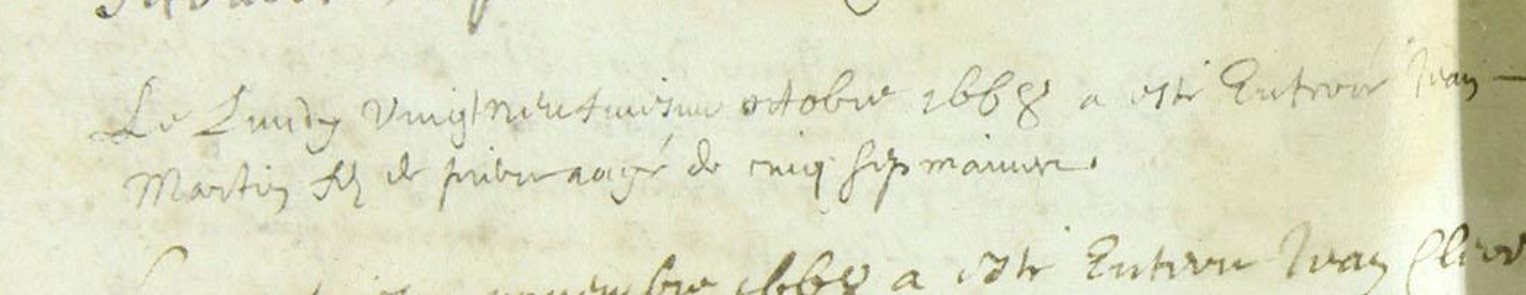 Le Lundy Vingt neufuiesme octobre 1668 a esté Enterré Jean
Martin filz de pierre aagé de cinq sepmaines.
novembre 1668 a esté Enterré Jean